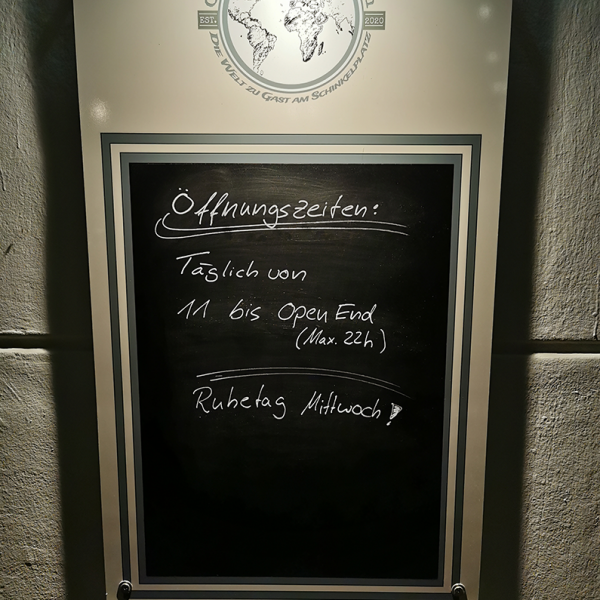 EST. 2020
DIE WELT ZU GAST AM SCHINKELPLATZ
Öffnungszeiten:
Täglich von
11 bis Open End
(Max. 22h)
Ruhetag Mittwoch!